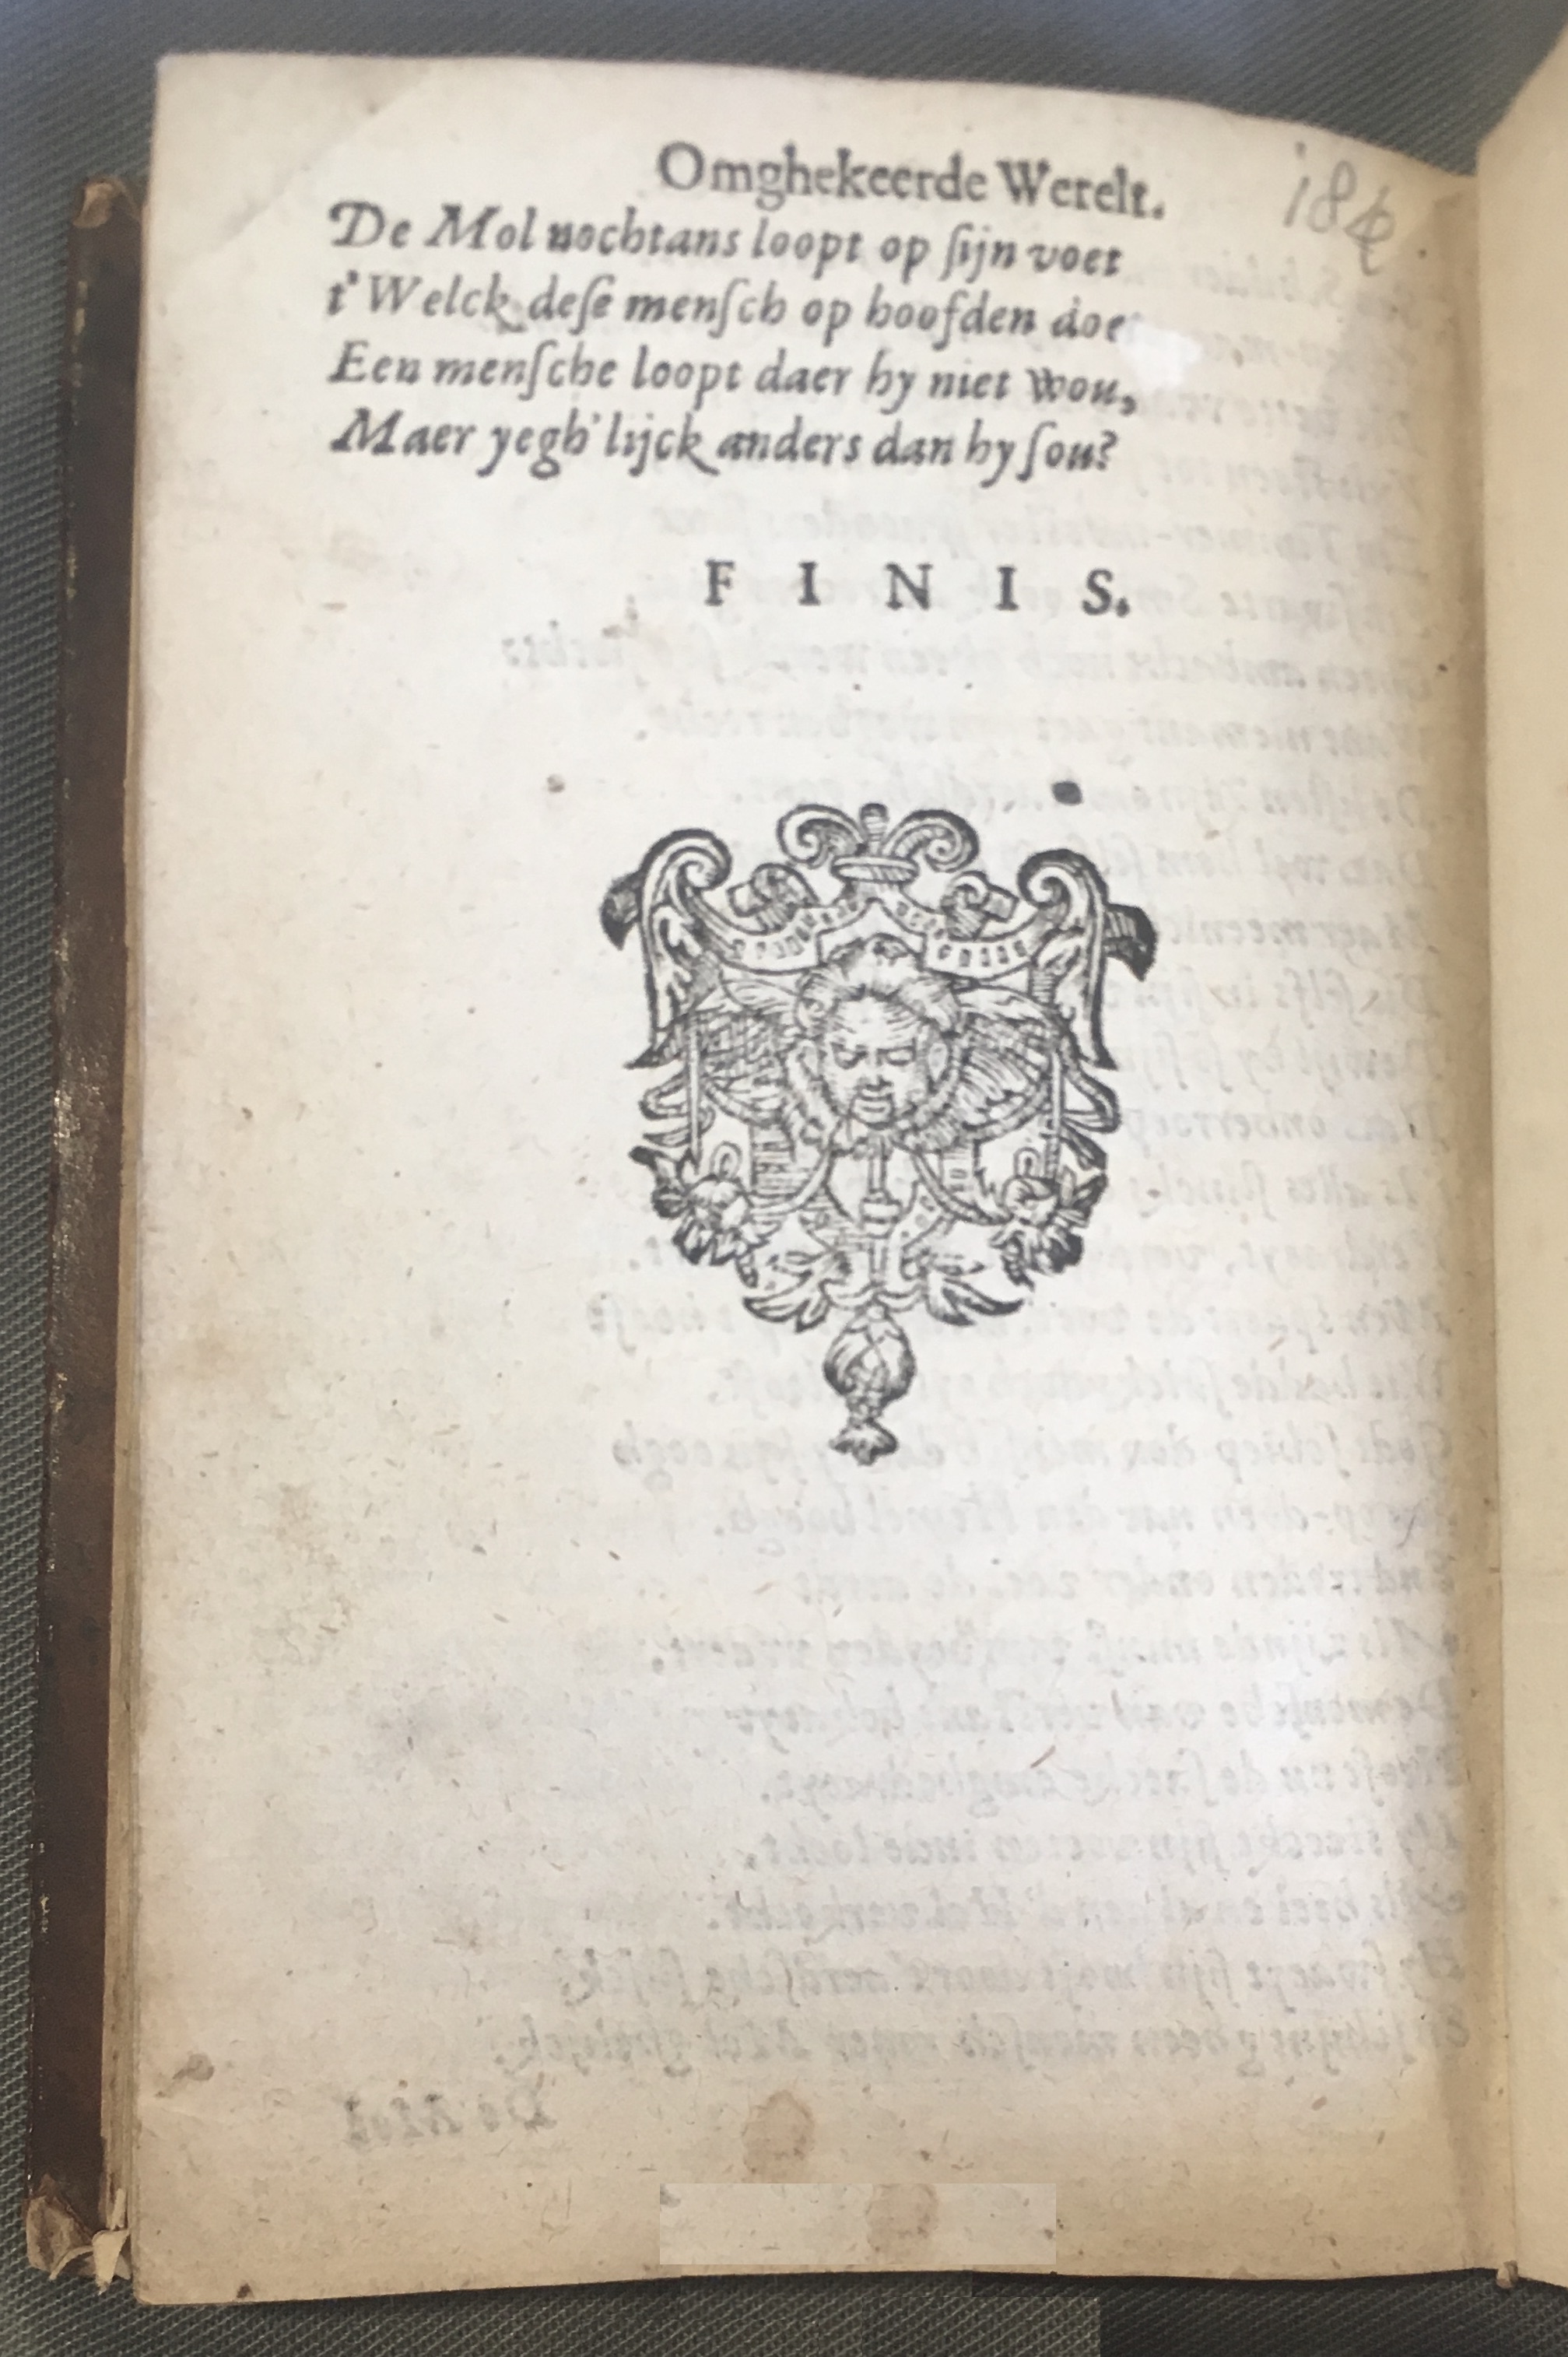 Omghekeerde Werelt.
De Mol nochtans loopt op ſijn voet
t'Welck deſe menſch op hoofden doe
Een menſche loopt daer hy niet wou,
Maer yegh'lijck anders dan hy ſou?
F I N I S.